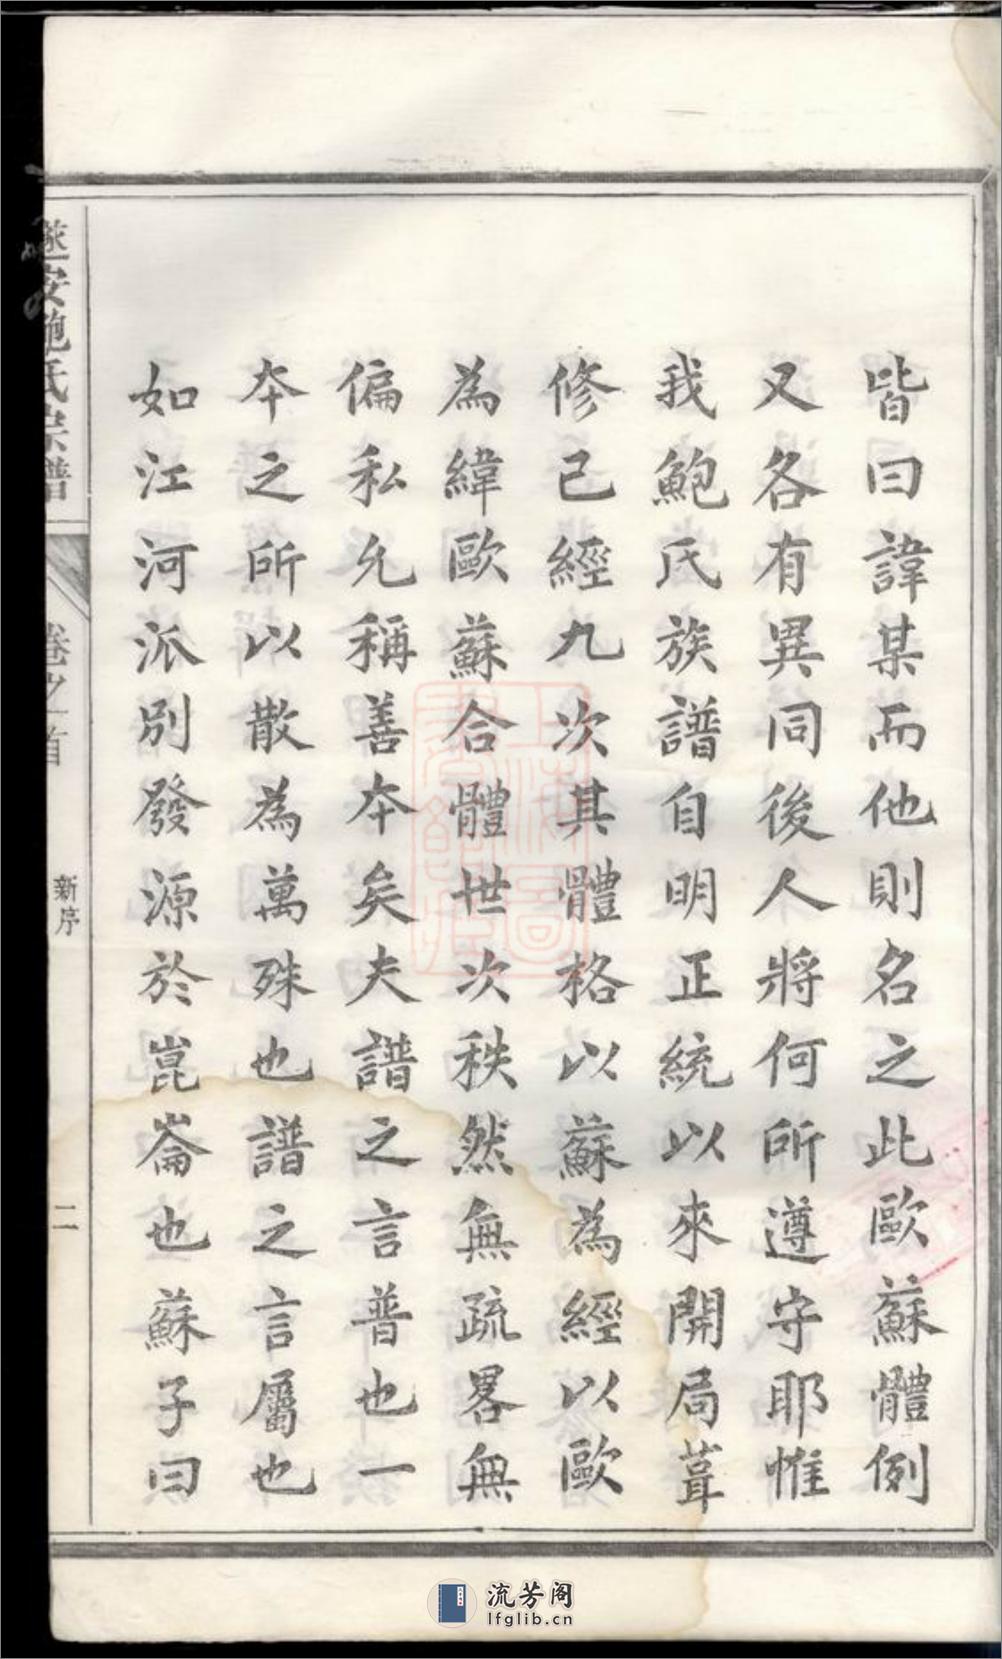 皆曰諱某而他則名之此歐蘇體例
又各有異同後人將何所遵守耶惟
我鮑氏族譜自明正統以來開局葺
修已經九次其體格以蘇為經以歐
為緯歐蘇合體世次秩然無疏畧無
偏私允稱善本矣夫譜之言普也一
本之所以散為萬殊也譜之言屬也
如江河派別發源於崑崙也蘇子曰
遂安鮑氏宗譜
卷之首
新序
二
流芳阁
lfglib.cn